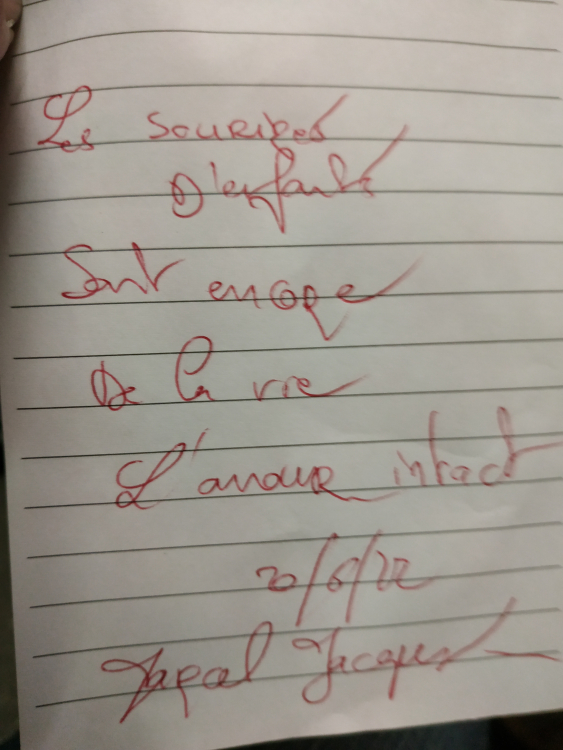 Les sourires
D'enfants
Sont encore
De la vie
L'amour intact
20/6/22
Jacques